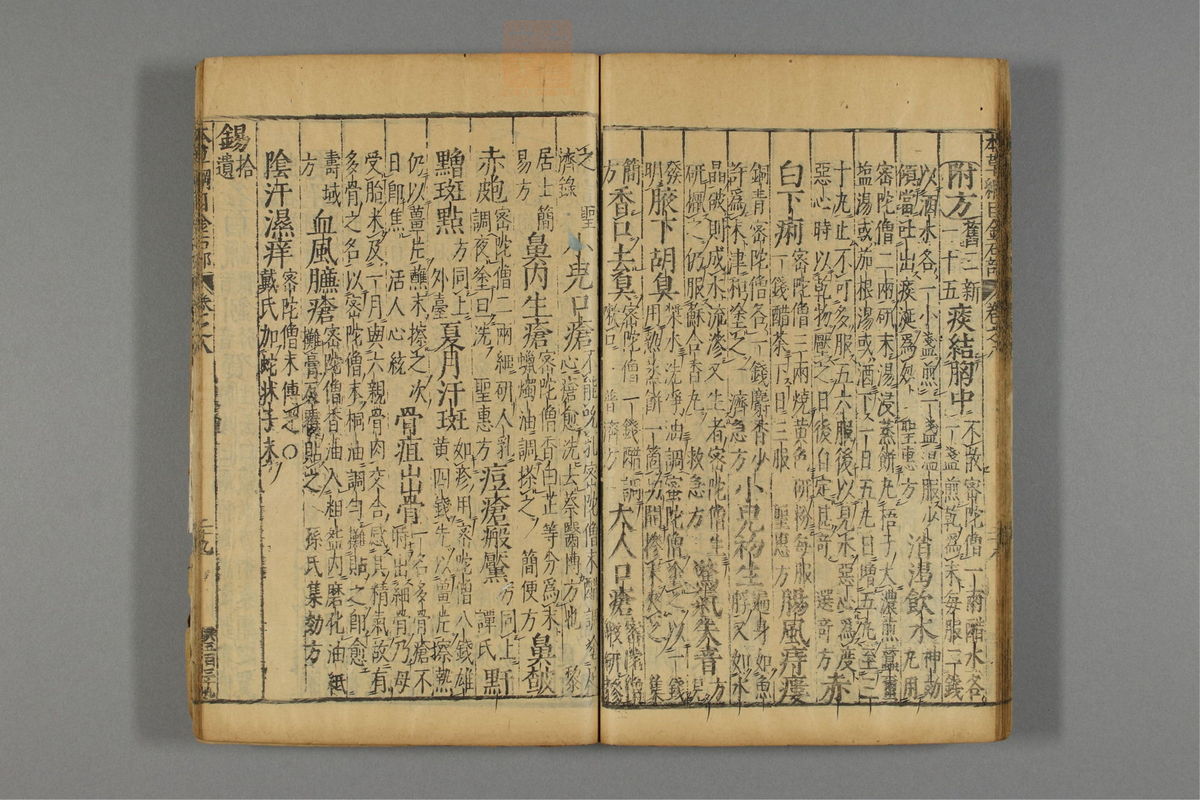 本草綱目金石部 卷之八
附方 舊三新一十五 痰結胸中 不散密陀僧一兩醋水各一盞煎乾爲末每服二錢
以酒水各一小盞煎一盞温服少傾當吐出痰涎爲效 聖惠方 消渴飲水 神効丸用
密陀僧二兩研末湯浸蒸餅丸梧子大濃煎蠶繭塩湯或茄根湯或酒下一日五丸日增五丸至三
十丸止不可多服五六服後以見水惡心爲度惡心時以乾物壓之日後自定甚奇 選奇方 赤
白下痢 密陀僧三兩燒黃色研粉每服一錢醋茶下日三服 聖惠方 腸風痔瘻
銅青密陀僧各一錢麝香少許爲末津和塗之 濟急方 小兒初生 遍身如魚脬又如水
晶破則成水流滲又生者密陀僧生研摻之仍服蘇合香丸 救急方 驚氣失音 方見
發明 腋下胡臭 漿水洗淨油調密陀僧塗之以一錢用熱蒸餅一箇切開摻末夾之 集
簡方 香口去臭 密陀僧一錢醋調漱口 普濟方 大人口瘡 密陀僧煅研摻
之 聖濟錄 小兒口瘡 不能吮乳密陀僧末醋調塗足心瘡愈洗去蔡醫博方也 黎
居士簡易方 鼻内生瘡 密陀僧香白芷等分爲末蠟燭油調搽之 簡便方 鼻皶
赤皰 密陀僧二兩細研人乳調夜塗旦洗 聖惠方 痘瘡瘢黶 方同上 譚氏 䵟
䵴斑點 方同上 外臺 夏月汗斑 如疹用密陀僧八錢雄黄四錢先以薑片擦熱
仍以薑片蘸末擦之次日即焦 活人心統 骨疽出骨 一名多骨瘡不時出細骨乃母
受胎未及一月與六親骨肉交合感其精氣故有多骨之名以密陀僧末桐油調匀攤貼之即愈
壽域方 血風臁瘡 密陀僧香油入粗盌内磨化油紙攤膏反覆貼之 孫氏集効方
陰汗濕痒 密陀僧末傅之○戴氏加蛇牀子末
錫 拾遺
本草綱目金石部 卷之八 二九